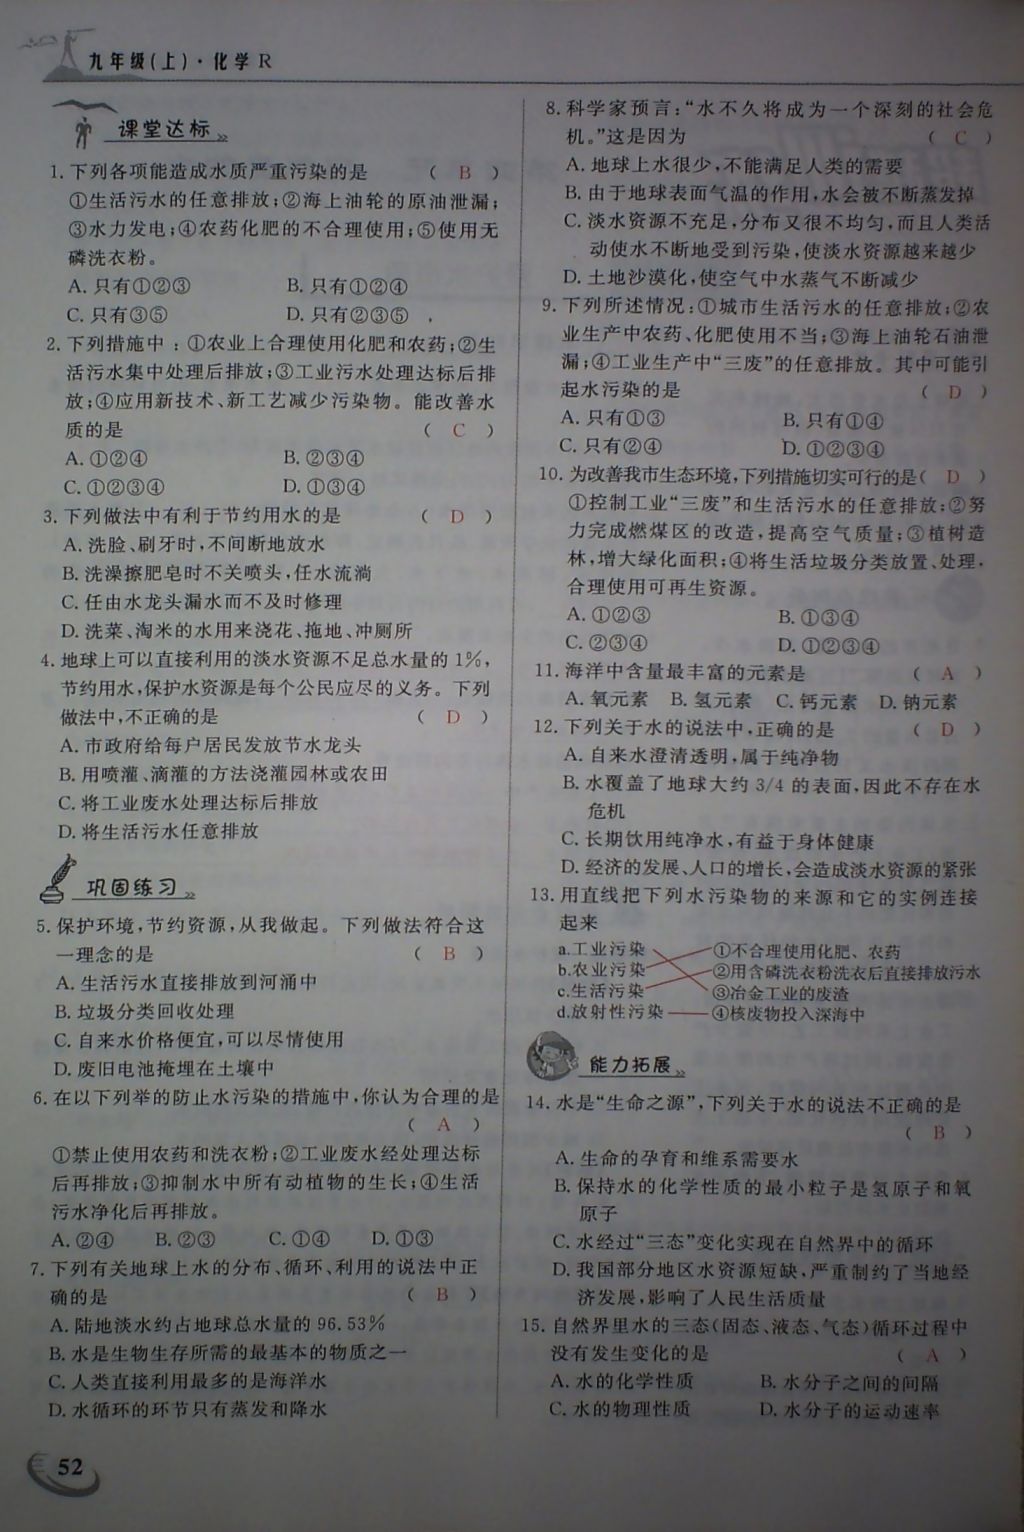 九年级(上)·化学 R
课堂达标
1. 下列各项能造成水质严重污染的是 ( B )
①生活污水的任意排放;②海上油轮的原油泄漏;
③水力发电;④农药化肥的不合理使用;⑤使用无
磷洗衣粉。
A. 只有①②③ B. 只有①②④
C. 只有③⑤ D. 只有②③⑤
2. 下列措施中:①农业上合理使用化肥和农药;②生
活污水集中处理后排放;③工业污水处理达标后排
放;④应用新技术、新工艺减少污染物。能改善水
质的是 ( C )
A. ①②④ B. ②③④
C. ①②③④ D. ①③④
3. 下列做法中有利于节约用水的是 ( D )
A. 洗脸、刷牙时,不间断地放水
B. 洗澡擦肥皂时不关喷头,任水流淌
C. 任由水龙头漏水而不及时修理
D. 洗菜、淘米的水用来浇花、拖地、冲厕所
4. 地球上可以直接利用的淡水资源不足总水量的 1%,
节约用水,保护水资源是每个公民应尽的义务。下列
做法中,不正确的是 ( D )
A. 市政府给每户居民发放节水龙头
B. 用喷灌、滴灌的方法浇灌园林或农田
C. 将工业废水处理达标后排放
D. 将生活污水任意排放
巩固练习
5. 保护环境,节约资源,从我做起。下列做法符合这
一理念的是 ( B )
A. 生活污水直接排放到河涌中
B. 垃圾分类回收处理
C. 自来水价格便宜,可以尽情使用
D. 废旧电池掩埋在土壤中
6. 在以下列举的防止水污染的措施中,你认为合理的是
( A )
①禁止使用农药和洗衣粉;②工业废水经处理达标
后再排放;③抑制水中所有动植物的生长;④生活
污水净化后再排放。
A. ②④ B. ②③ C. ①④ D. ①③
7. 下列有关地球上水的分布、循环、利用的说法中正
确的是 ( B )
A. 陆地淡水约占地球总水量的 96.53%
B. 水是生物生存所需的最基本的物质之一
C. 人类直接利用最多的是海洋水
D. 水循环的环节只有蒸发和降水
52
8. 科学家预言:“水不久将成为一个深刻的社会危
机。”这是因为 ( C )
A. 地球上水很少,不能满足人类的需要
B. 由于地球表面气温的作用,水会被不断蒸发掉
C. 淡水资源不充足,分布又很不均匀,而且人类活
动使水不断地受到污染,使淡水资源越来越少
D. 土地沙漠化,使空气中水蒸气不断减少
9. 下列所述情况:①城市生活污水的任意排放;②农
业生产中农药、化肥使用不当;③海上油轮石油泄
漏;④工业生产中“三废”的任意排放。其中可能引
起水污染的是 ( D )
A. 只有①③ B. 只有①④
C. 只有②④ D. ①②③④
10. 为改善我市生态环境,下列措施切实可行的是( D )
①控制工业“三废”和生活污水的任意排放;②努
力完成燃煤区的改造,提高空气质量;③植树造
林,增大绿化面积;④将生活垃圾分类放置、处理,
合理使用可再生资源。
A. ①②③ B. ①③④
C. ②③④ D. ①②③④
11. 海洋中含量最丰富的元素是 ( A )
A. 氧元素 B. 氢元素 C. 钙元素 D. 钠元素
12. 下列关于水的说法中,正确的是 ( D )
A. 自来水澄清透明,属于纯净物
B. 水覆盖了地球大约 3/4 的表面,因此不存在水
危机
C. 长期饮用纯净水,有益于身体健康
D. 经济的发展、人口的增长,会造成淡水资源的紧张
13. 用直线把下列水污染物的来源和它的实例连接
起来
a.工业污染 ①不合理使用化肥、农药
b.农业污染 ②用含磷洗衣粉洗衣后直接排放污水
c.生活污染 ③冶金工业的废渣
d.放射性污染 ④核废物投入深海中
能力拓展
14. 水是“生命之源”,下列关于水的说法不正确的是
( B )
A. 生命的孕育和维系需要水
B. 保持水的化学性质的最小粒子是氢原子和氧
原子
C. 水经过“三态”变化实现在自然界中的循环
D. 我国部分地区水资源短缺,严重制约了当地经
济发展,影响了人民生活质量
15. 自然界里水的三态(固态、液态、气态)循环过程中
没有发生变化的是 ( A )
A. 水的化学性质 B. 水分子之间的间隔
C. 水的物理性质 D. 水分子的运动速率